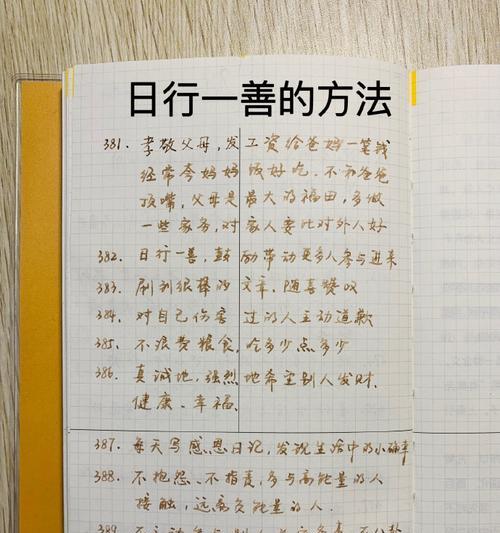 日行一善的方法
381. 孝敬父母,发工资给爸妈一笔钱
经常夸妈妈饭好吃.不和爸爸
顶嘴,父母是最大的福田,多做
一些家务,对家人要比对外人好
382. 日行一善,鼓励带动更多人参与进来
383. 刷到很棒的文章,随喜赞叹
384. 对自己伤害过的人主动道歉
385. 不浪费粮食,吃多少点多少
386. 真诚地,强烈地希望别人发财.
健康、幸福.
387. 每天写感恩日记,发现生活中的小确幸
388. 不抱怨、不指责,多与高能量的人
接触,远离负能量的人.
389.